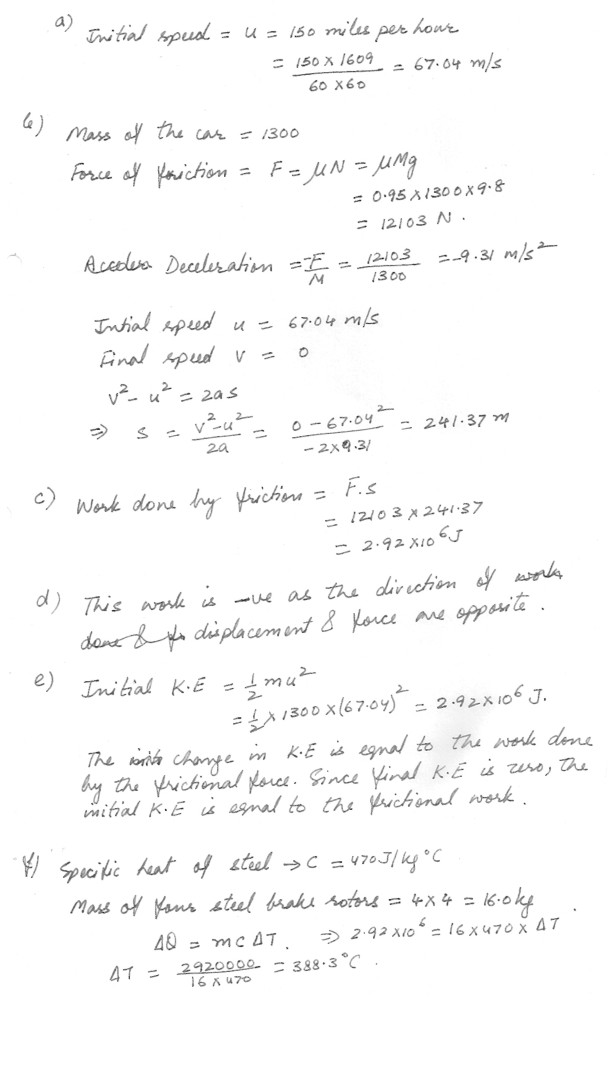 a) Initial speed = u = 150 miles per hour
= 150 X 1609 / 60 X60 = 67.04 m/s
b) Mass of the car = 1300
Force of friction = F = μN = μMg
= 0.95 X 1300 X 9.8
= 12103 N.
Deceleration = -F/M = 12103/1300 = -9.31 m/s²
Intial speed u = 67.04 m/s
Final speed v = 0
v² - u² = 2as
⇒ s = v²-u² / 2a = 0 - 67.04² / -2X9.31 = 241.37 m
c) Work done by friction = F.s
= 12103 X 241.37
= 2.92 X10⁶J
d) This work is -ve as the direction of
displacement & force are opposite.
e) Initial K.E = ½ mu²
= ½ X 1300 X (67.04)² = 2.92 X 10⁶ J.
The change in K.E is equal to the work done
by the frictional force. Since final K.E is zero, the
initial K.E is equal to the frictional work.
f) Specific heat of steel → C = 470J/kg°C
Mass of four steel brake rotors = 4 X 4 = 16.0kg.
ΔQ = mCΔT. ⇒ 2.92 X10⁶ = 16 X 470 X ΔT
ΔT = 2920000 / 16 X 470 = 388.3°C.